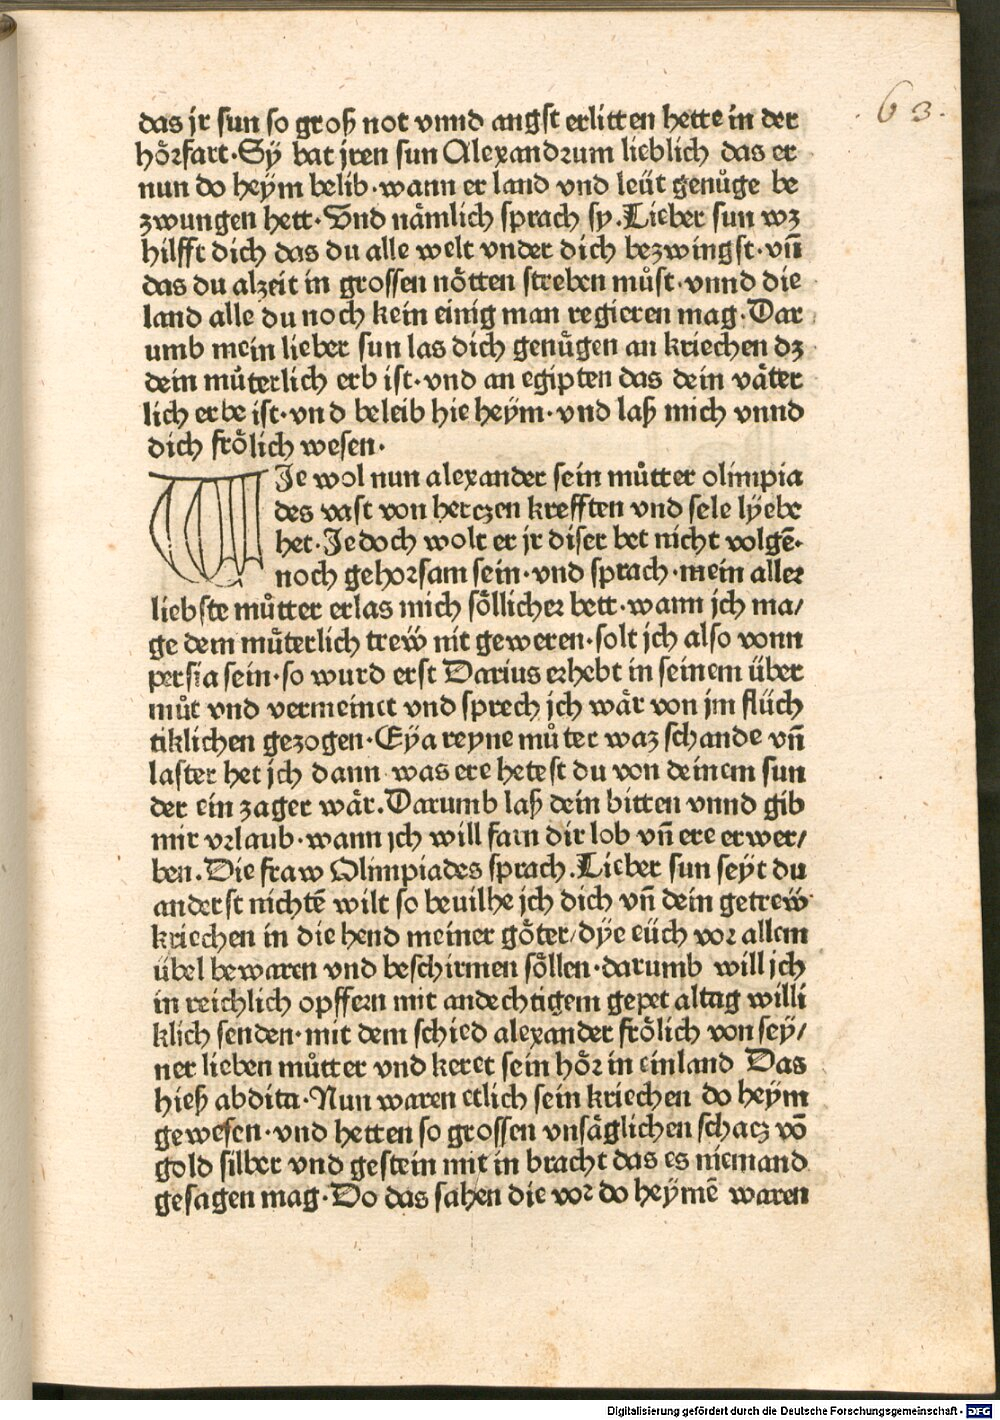 63.
das jr sun so groß not vnnd angst erlitten hette in der
hoͤrfart·Sÿ bat jren sun Alexandrum lieblich das er
nun do heÿm belib·wann er land vnd leüt genuͦge be
zwungen hett·Vnd naͤmlich sprach sy.Lieber sun wz
hilfft dich das du alle welt vnder dich bezwingst·vn̄
das du alzeit in grossen noͤtten streben muͦst·vnnd die
land alle du noch kein einig man regieren mag·Dar
umb mein lieber sun las dich genuͤgen an kriechen dz
dein muͤterlich erb ist·vnd an egipten das dein vaͤter
lich erbe ist·vnd beleib hie heÿm·vnd laß mich vnnd
dich froͤlich wesen·
WJe wol nun alexander sein muͦtter olimpia
des vast von herczen krefften vnd sele lÿebe
het·Jedoch wolt er jr diser bet nicht volgē·
noch gehorsam sein·vnd sprach·mein aller
liebste muͦtter erlas mich soͤllicher bett·wann jch ma/
ge dem muͤterlich trew̎ nit geweren·solt jch also vonn
persia sein·so wurd erst Darius erhebt in seinem über
muͦt vnd vermeinet vnd sprech jch waͤr von jm flüch
tiklichen gezogen·Eÿa reyne muͦter waz schande vn̄
laster het jch dann was ere hetest du von deinem sun
der ein zager waͤr.Darumb laß dein bitten vnnd gib
mir vrlaub·wann jch will farn dir lob vn̄ ere erwer/
ben.Die fraw Olimpiades sprach.Lieber sun seyt du
anderst nichtē wilt so beuilhe jch dich vn̄ dein getrew̎
kriechen in die hend meiner goͤter/dÿe eüch vor allem
übel bewaren vnd beschirmen soͤllen·darumb will jch
in reichlich opffern mit andechtigem gepet altag willi
klich senden·mit dem schied alexander froͤlich von seÿ/
ner lieben muͦtter vnd keret sein hoͤr in ein land Das
hieß abdita·Nun waren etlich sein kriechen do heÿm
gewesen·vnd hetten so grossen vnsaͤglichen schacz vō
gold silber vnd gestein mit in bracht das es niemand
gesagen mag·Do das sahen die vor do heÿmē waren
Digitalisierung gefördert durch die Deutsche Forschungsgemeinschaft - DFG